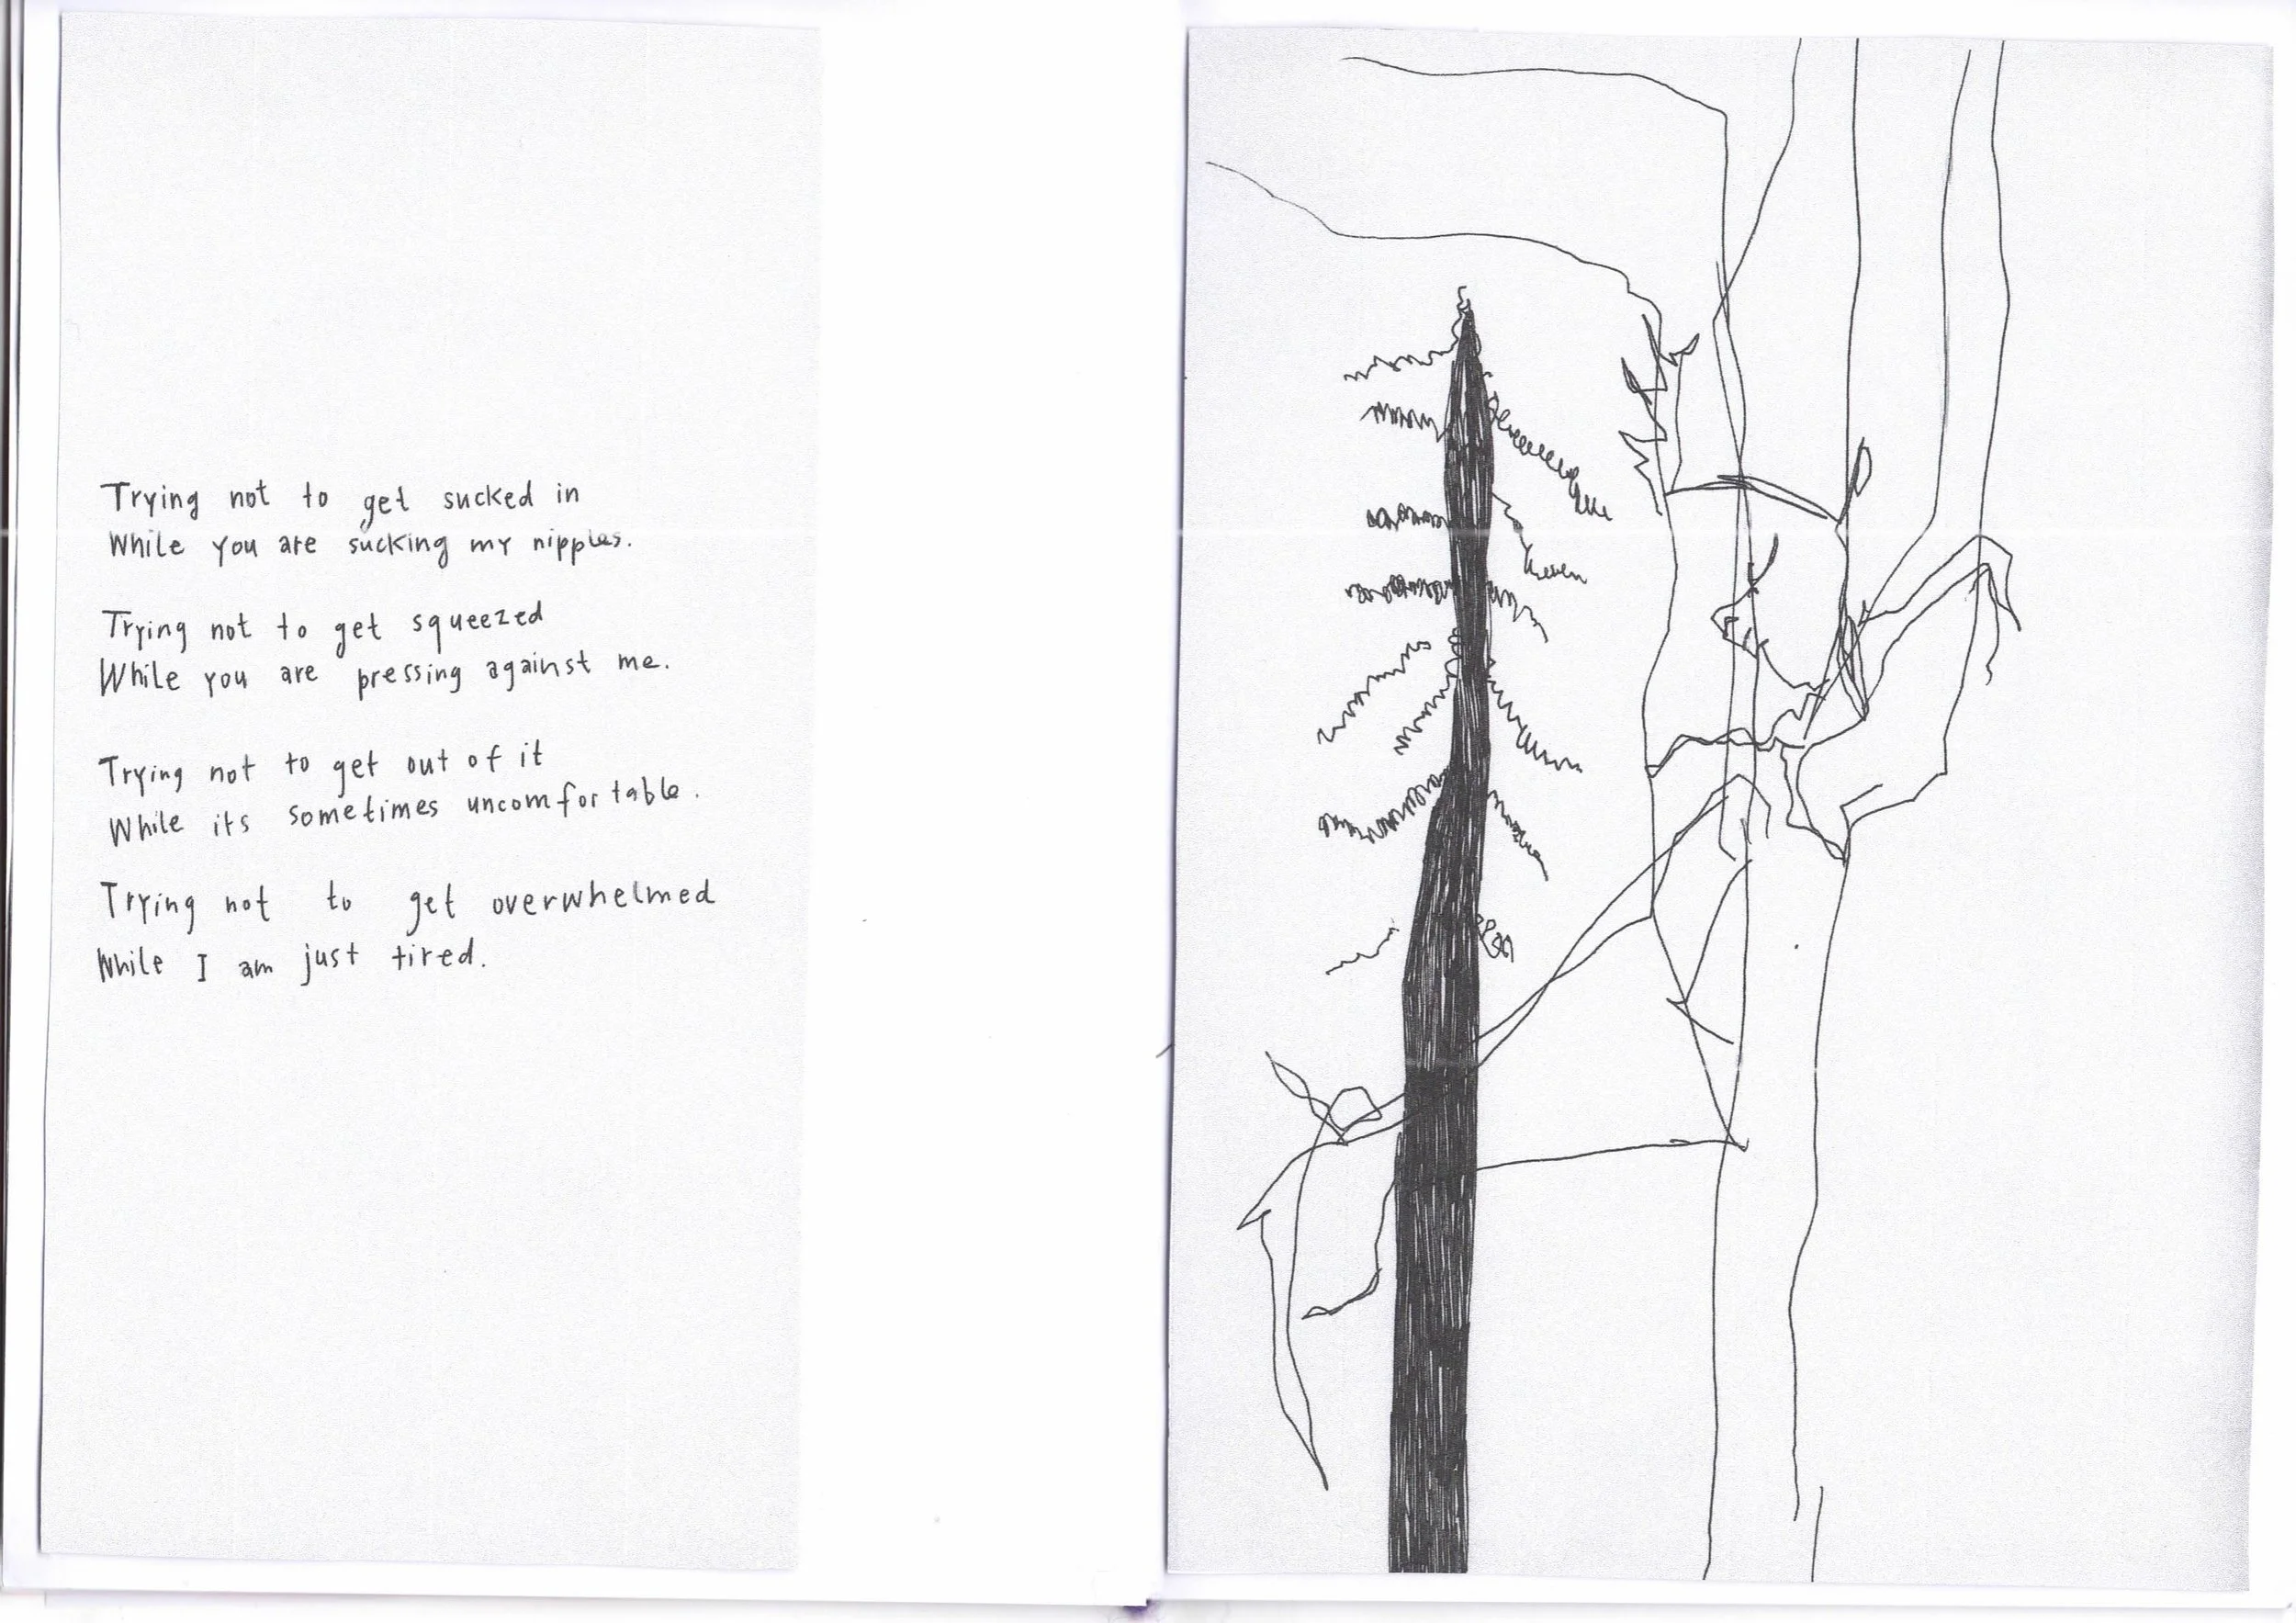 Trying not to get sucked in
While you are sucking my nipples.
Trying not to get squeezed
While you are pressing against me.
Trying not to get out of it
While its sometimes uncomfortable.
Trying not to get overwhelmed
While I am just tired.